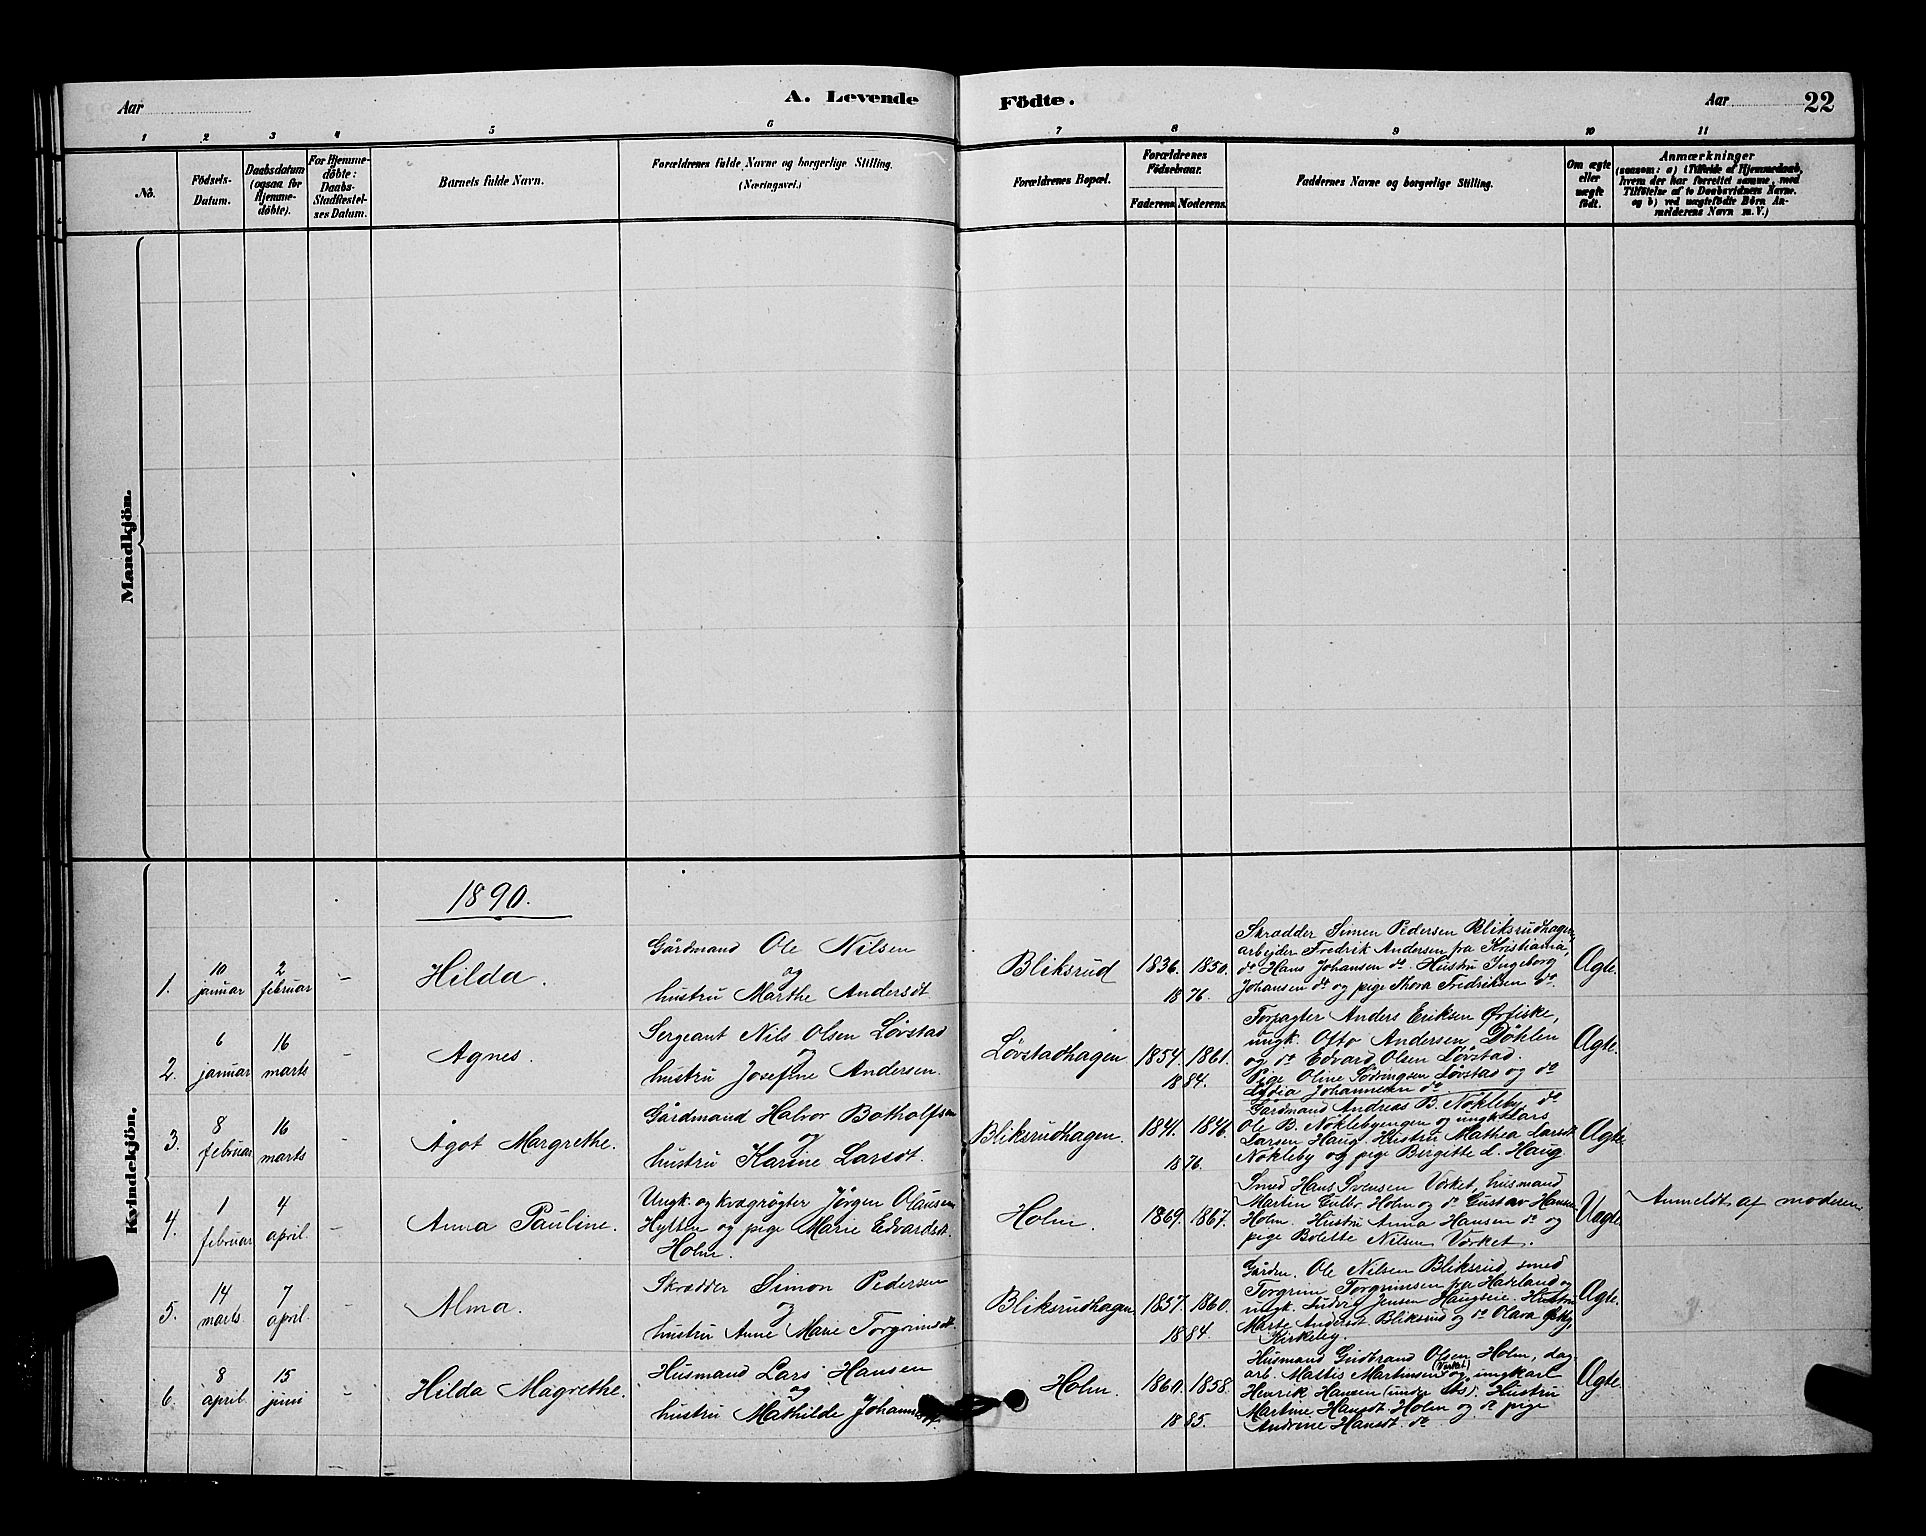 Aar
A. Levende Födte.
Aar
22
1 2 3 4 5 6 7 8 9 10 11
No.
Födsels-
Datum.
Daabsdatum
(ogsaa for
Hjemme-
døbte).
For Hjemme-
døbte:
Daabs-
Stadfæstel-
ses Datum.
Barnets fulde Navn.
Forældrenes fulde Navne og borgerlige Stilling.
(Næringsvei.)
Forældrenes Bopæl.
Forældrenes
Födselsaar.
Faderens. Moderens.
Faddernes Navne og borgerlige Stilling.
Om ægte
eller
uægte
födt.
Anmærkninger
(saasom: a) i Tilfælde af Hjemmedaab,
hvem der har forrettet samme, med
Tilföielse af to Daabsvidners Navne.
og b) ved uægtefödte Börn An-
melderens Navn m. V.)
Mandkjön.
Kvindekjön.
1890.
1.
10
januar
2
februar
-
Hilda.
Gårdmand Ole Nilsen
og
hustru Marthe Andersdt.
Bliksrud
1836. 1850.
1876.
Skrædder Simen Pedersen Bliksrudhagen,
arbejder Fredrik Andersen fra Kristiania,
do Hans Johansen do. Hustru Ingeborg
Johansen do og pige Thora Fredriksen do.
Ægte.
2.
6
januar
16
marts
-
Agnes.
Sergeant Nils Olsen Løvstad
og
hustru Josefine Andersen.
Løvstadhagen
1854. 1861.
1884.
Forpagter Anders Eriksen Ørfiske,
ungk. Otto Andersen Døhlen
og do Edvard Olsen Løvstad.
Pige Oline Sødringsen Løvstad og do
Lydia Johannesen do
Ægte.
3.
8
februar
16
marts
-
Ågot Margrethe.
Gårdmand Halvor Botholfsen
og
hustru Karine Larsdt.
Bliksrudhagen.
1841. 1846.
1876.
Gårdmand Andreas B. Nøkleby, do
Ole B. Nøklebyengen og ungk. Lars
Larsen Haug. Hustru Mathea Larsdt
Nøkleby og pige Birgitte L. Haug
Ægte
4.
1
februar
4
april.
-
Anna Pauline.
Ungk. og kvægrøgter Jørgen Olausen
Hytten og pige Marie Edvardsdt.
Holm.
Holm.
1869. 1867.
Smed Hans Svensen Værket, husmand
Martin Gulbr. Holm og do Gustav Hansen
Holm. Hustru Anna Hansen do og
pige Bolette Nilsen Værket.
Uægte
Anmeldt af moderen.
5.
14
marts
7
april.
-
Alma.
Skrædder Simon Pedersen
og
hustru Anne Marie Torgrimsdt.
Bliksrudhagen
1857. 1860.
1884.
Gårdm. Ole Nilsen Bliksrud, smed
Torgrim Torgrimsen fra Hadeland og
ungk. Ludvig Jensen Haugseie. Hustru
Marte Andersdt Bliksrud og do Olava
Kirkeby.
Ægte.
6.
8
april.
15
juni
-
Hilda Magrethe.
Husmand Lars Hansen
og
hustru Mathilde Johannesdt.
Holm.
1860. 1858.
1885.
Husmand Gudbrand Olsen Holm, dag-
arb. Mattis Martinsen (Værket) og ungkarl
Henrik Hansen Hustru
Martine Hansdt. Holm og do pige
Andrine Hansdt. do
Ægte.